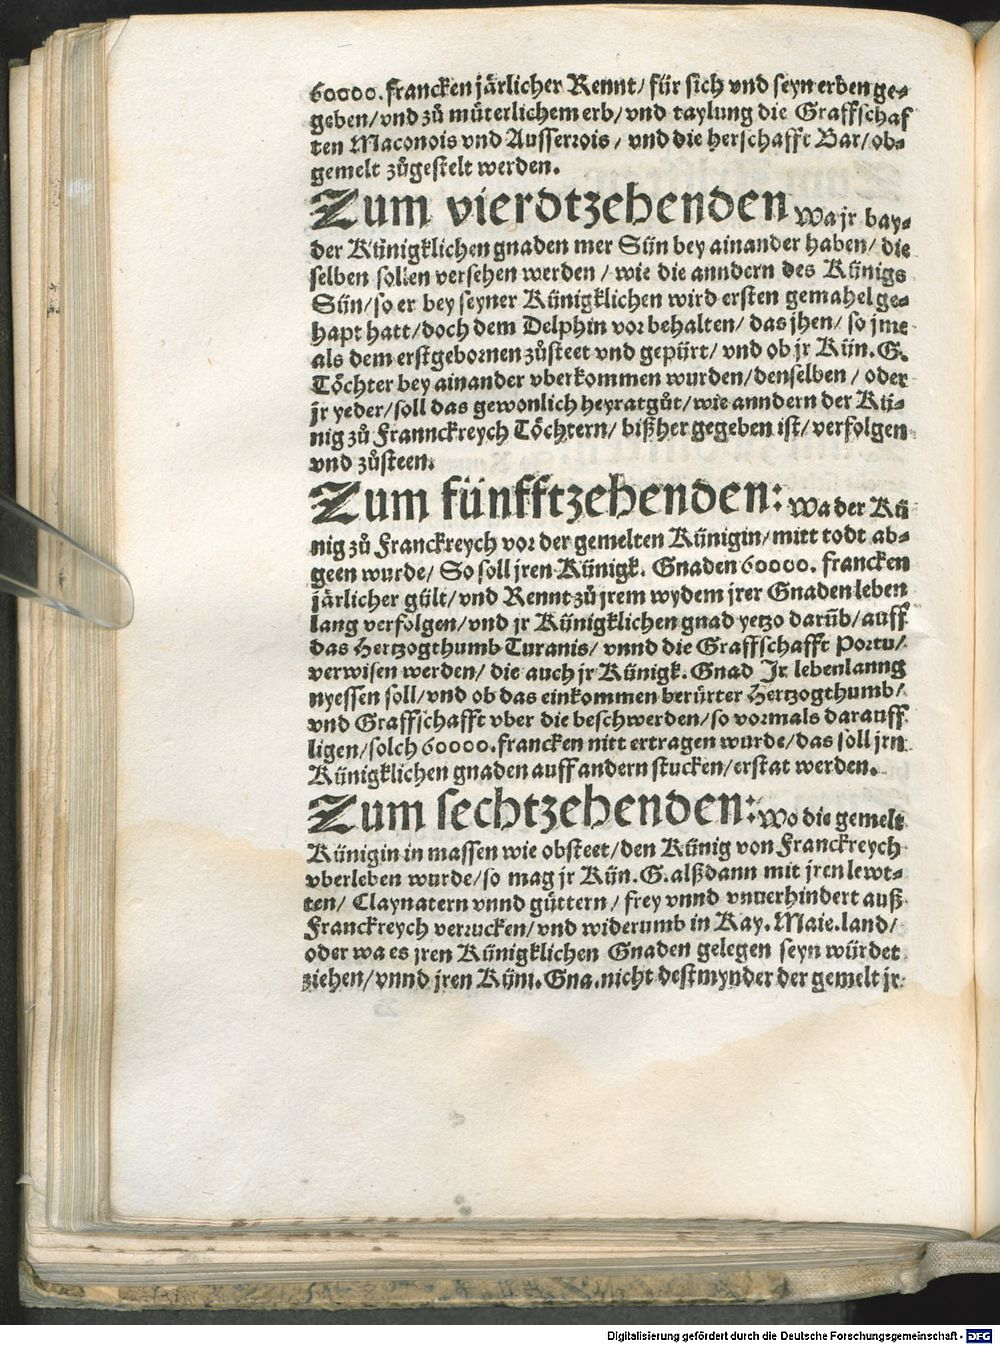 60000. francken järlicher Rennt/ für sich vnd seyn erben ge-
geben/ vnd zů müterlichem erb/ vnd taylung die Graffschaf
ten Maconois vnd Ausserrois/ vnd die herschafft Bar/ ob-
gemelt zůgestelt werden.
Zum vierdtzehenden Wa jr bay-
der Künigklichen gnaden mer Sün bey ainander haben/ die
selben sollen versehen werden/ wie die anndern des Künigs
Sün/ so er bey seyner Künigklichen wird ersten gemahel ge-
hapt hatt/ doch dem Delphin vor behalten/ das jhen/ so jme
als dem erstgebornen zůsteet vnd gepürt/ vnd ob jr Kün. G.
Töchter bey ainander vberkommen wurden/ denselben/ oder
jr yeder/ soll das gewonlich heyratgůt/ wie anndern der Kü-
nig zů Frannckreych Töchtern/ bißher gegeben ist/ verfolgen
vnd zůsteen.
Zum fünfftzehenden: Wa der Kü
nig zů Franckreych vor der gemelten Künigin/ mitt todt ab-
geen wurde/ So soll jren Künigk. Gnaden 60000. francken
järlicher gült/ vnd Rennt zů jrem wydem jrer Gnaden leben
lang verfolgen/ vnd jr Künigklichen gnad yetzo darüb/ auff
das Hertzogthumb Turanis/ vnnd die Graffschafft Portu/
verwisen werden/ die auch jr Künigk. Gnad Jr lebenlanng
nyessen soll/ vnd ob das einkommen berürter Hertzogthumb/
vnd Graffschafft vber die beschwerden/ so vormals darauff
ligen/ solch 60000. francken nitt ertragen wurde/ das soll jrn
Künigklichen gnaden auff andern stucken/ erstat werden.
Zum sechtzehenden: Wo die gemelt
Künigin in massen wie obsteet/ den Künig von Franckreych
vberleben wurde/ so mag jr Kün. G. alßdann mit jren lewt-
ten/ Claynatern vnnd güttern/ frey vnnd vnuerhindert auß
Franckreych verrucken/ vnd widerumb in Kay. Maie. land/
oder wa es jren Künigklichen Gnaden gelegen seyn würdet
ziehen/ vnnd jren Küni. Gna. nicht destmynder der gemelt jr
Digitalisierung gefördert durch die Deutsche Forschungsgemeinschaft - DFG